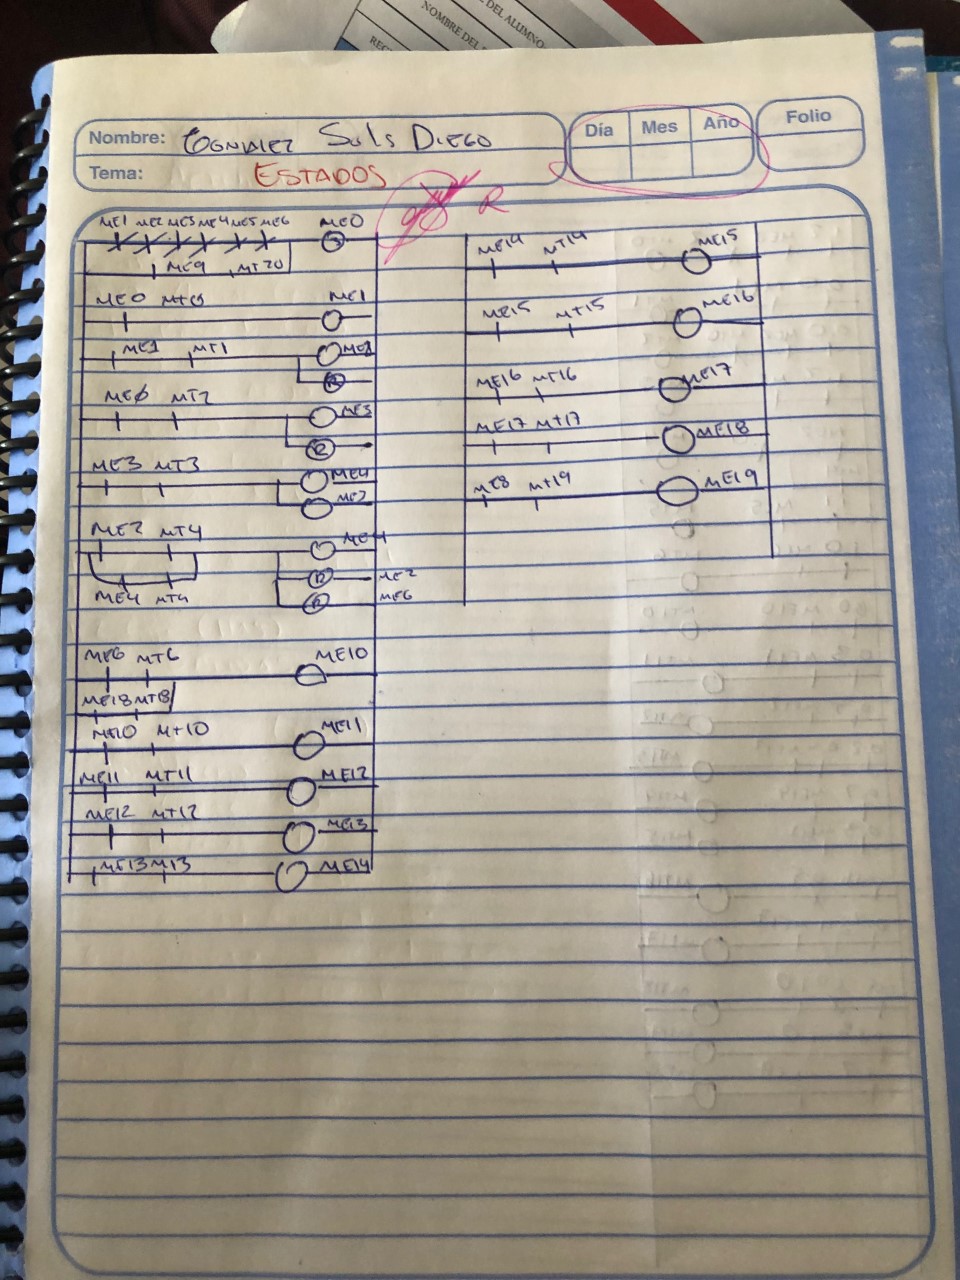 DEL ALUMNO
NOMBRE DEL
Nombre: GONZALEZ Sols DIEGO
Día Mes Año
Folio
Tema: ESTADOS
R
ME1 ME2 ME3 ME4 ME5 ME6 ME0
ME9 MT20
ME0 MT0 ME1
ME1 MT1
R
ME0 MT2 ME3
R
ME3 MT3 ME4
ME7
ME2 MT4
R ME2
ME4 MT4 R ME6
ME6 MT6 ME10
ME18 MT8
ME10 MT10 ME11
ME11 MT11 ME12
ME12 MT12 ME13
ME13 M13 ME14
ME14 MT14 ME15
ME15 MT15 ME16
ME16 MT16 ME17
ME17 MT17 ME18
ME8 MT19 ME19